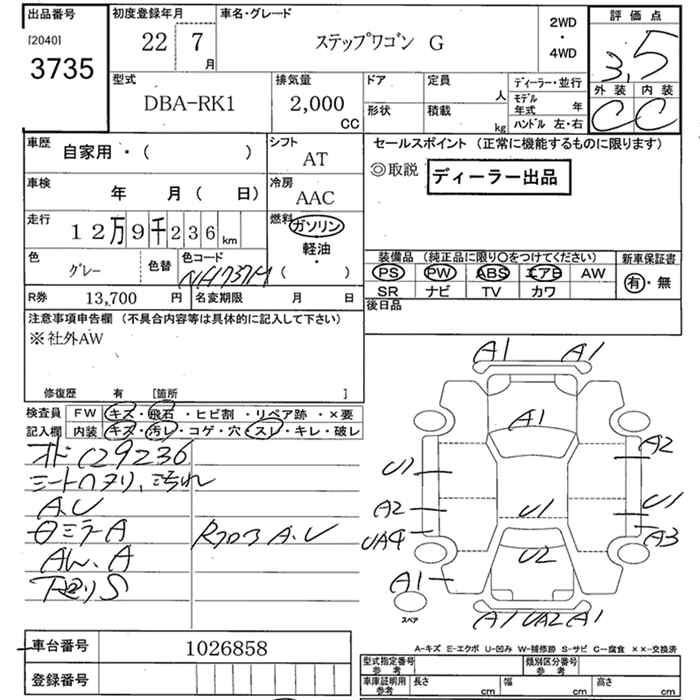 出品番号
[2040]
3735
初度登録年月
22 7月
車名・グレード
ステップワゴン G
2WD
・
4WD
評価点
3.5
外装 内装
C C
型式
DBA-RK1
排気量
2,000 CC
ドア
定員 人
形状
積載 kg
ディーラー・並行
モデル年式 年
ハンドル 左・右
車歴
自家用・( )
シフト
AT
車検
年 月( 日)
冷房
AAC
走行
12万9千236km
燃料
ガソリン
軽油
・
( )
色
グレー
色替
色コード
NH737M
R券 13,700 円
名変期限 月 日
セールスポイント (正常に機能するものに限ります)
◎取説 ディーラー出品
装備品 (純正品に限り○をつけてください)
PS PW ABS エアB AW
SR ナビ TV カワ
新車保証書
有・無
後日品
注意事項申告欄 (不具合内容等は具体的に記入して下さい)
※社外AW
修復歴 有 [箇所 ]
検査員記入欄
FW キズ・飛石・ヒビ割・リペア跡・×要
内装 キズ・汚レ・コゲ・穴・スレ・キレ・破レ
129236
シートワヌリ、汚れ
A.U
ロミラーA
Rフロア A.U
AW.A
下廻りS
A1 A1
A1
U1 A2
A2 U1 U1
UA4 A3
U2
A1
スペア
A1 UA2 A1
車台番号 1026858
登録番号
A-キズ E-エクボ U-凹み W-補修跡 S-サビ C-腐食 ××-交換済
型式指定番号 参考
類別区分番号 参考
車庫証明用 参考
長さ cm 幅 cm 高さ cm